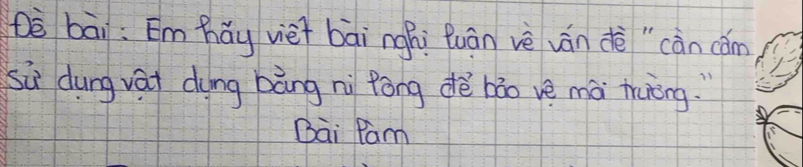 Đề bài: Em hãy viết bài nghị luận về vấn đề "cần cấm
sử dụng vật dụng bằng ni lông để bảo vệ môi trường."
Bài làm